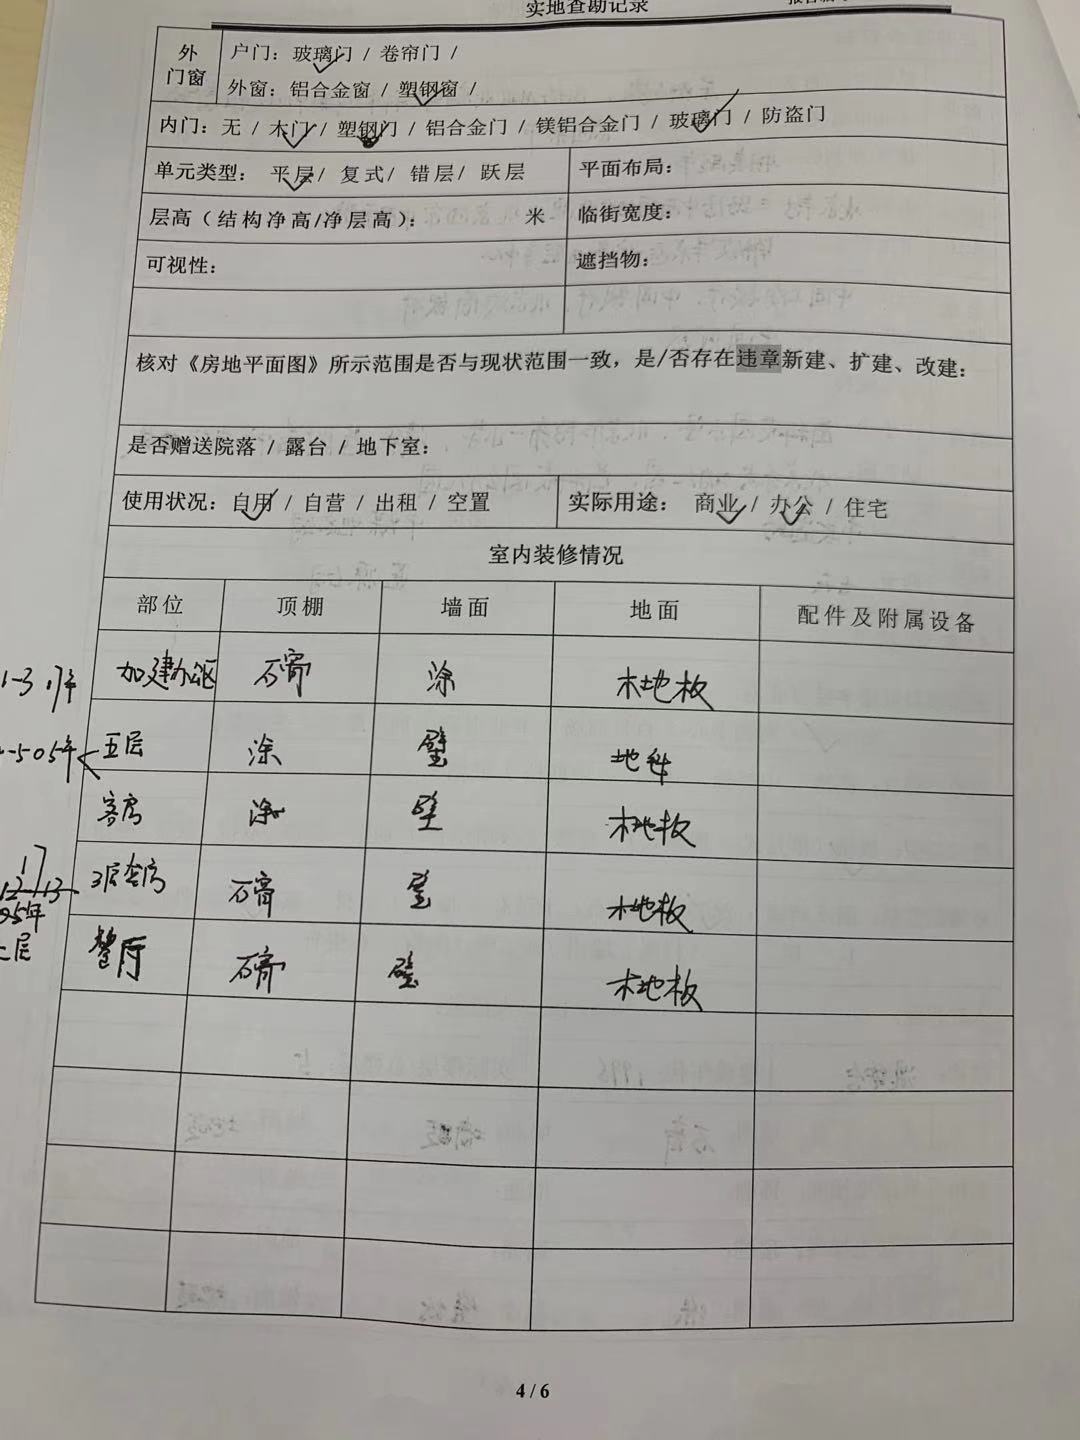 实地查勘记录
外门窗
户门：玻璃门 / 卷帘门 /
外窗：铝合金窗 / 塑钢窗 /
内门：无 / 木门 / 塑钢门 / 铝合金门 / 镁铝合金门 / 玻璃门 / 防盗门
单元类型： 平层/ 复式/ 错层/ 跃层 平面布局：
层高（结构净高/净层高）： 米 临街宽度：
可视性： 遮挡物：
核对《房地平面图》所示范围是否与现状范围一致，是/否存在违章新建、扩建、改建：
是否赠送院落 / 露台 / 地下室：
使用状况：自用 / 自营 / 出租 / 空置 实际用途： 商业 / 办公 / 住宅
室内装修情况
部位 顶棚 墙面 地面 配件及附属设备
1-3 17年 加建办公区 石膏 涂 木地板
-5 05年 五层 涂 壁
客房 涂 壁 木地板
3层套房 石膏 壁 木地板
05年
餐厅 石膏 壁 木地板
4 / 6